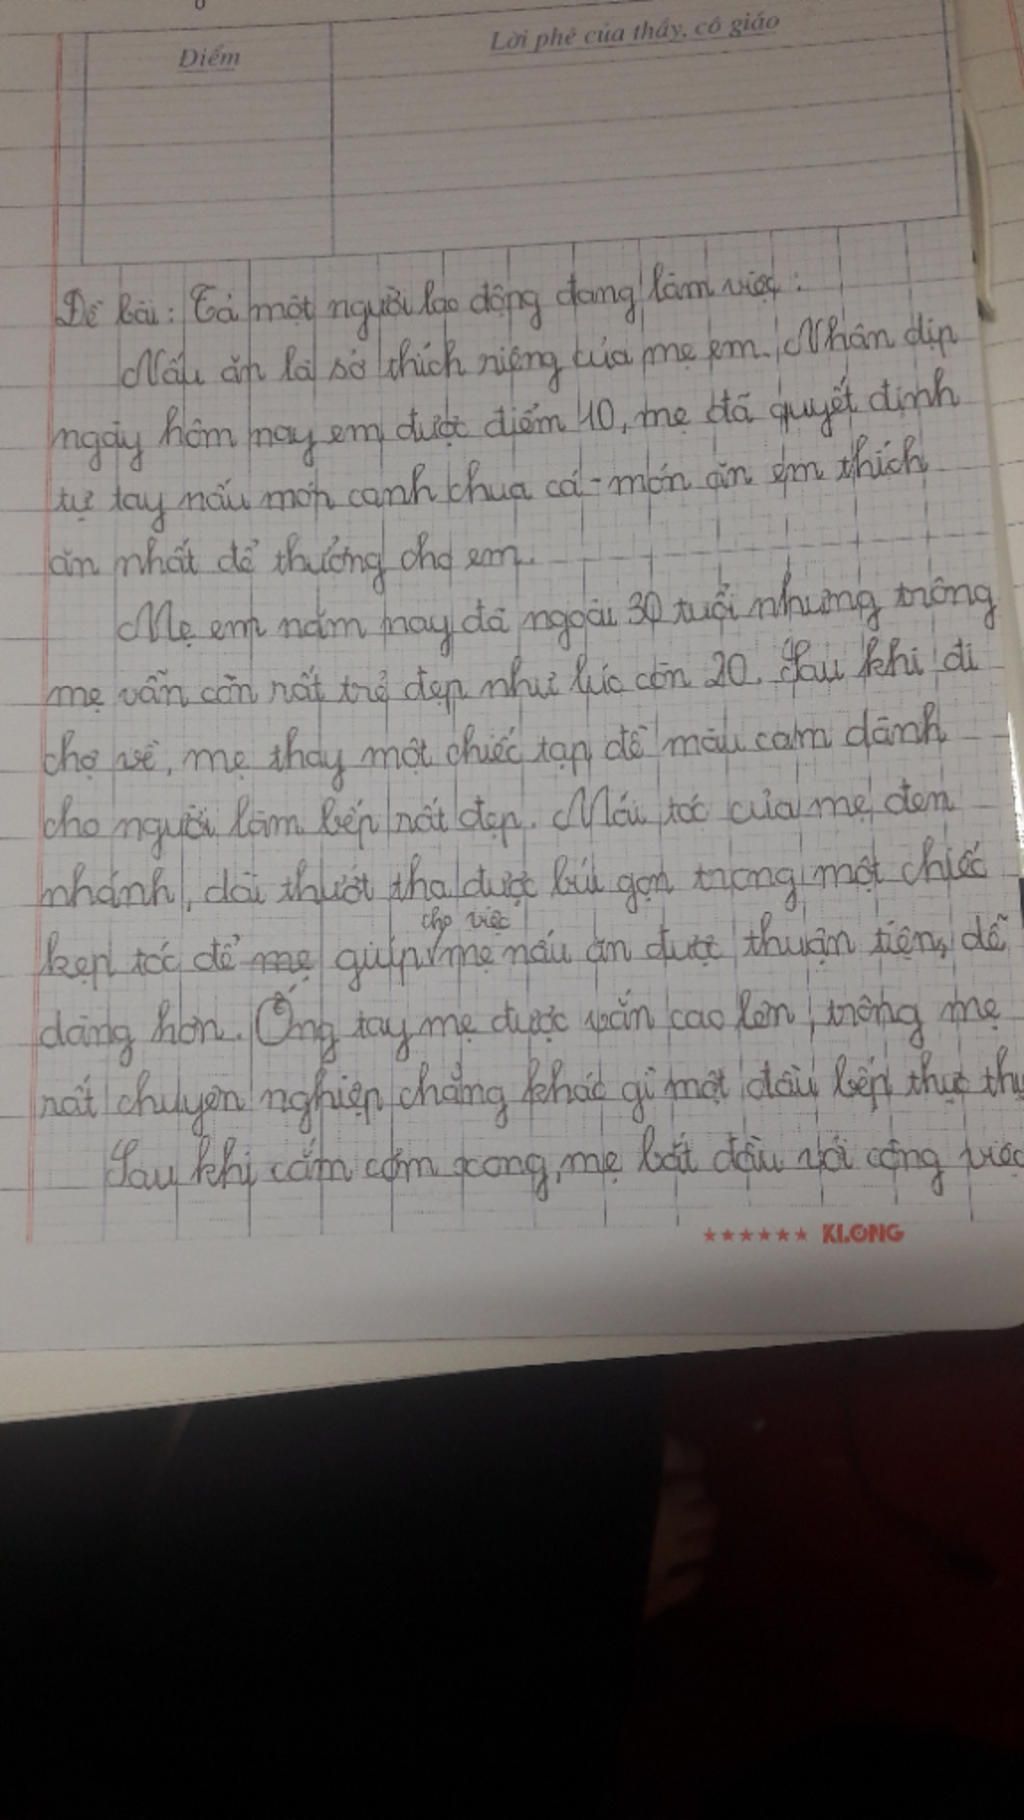 Điểm
Lời phê của thầy, cô giáo
Đề bài: Tả một người lao động đang làm việc:
Nấu ăn là sở thích riêng của mẹ em. Nhân dịp
ngày hôm nay em được điểm 10, mẹ đã quyết định
tự tay nấu món canh chua cá - món ăn em thích
ăn nhất để thưởng cho em.
Mẹ em năm nay đã ngoài 30 tuổi nhưng trông
mẹ vẫn còn rất trẻ đẹp như lúc còn 20. Sau khi đi
chợ về, mẹ thay một chiếc tạp dề màu cam dành
cho người làm bếp rất đẹp. Mái tóc của mẹ đen
nhánh, dài thướt tha được búi gọn trong một chiếc
cho việc
kẹp tóc để mẹ giúp mẹ nấu ăn được thuận tiện, dễ
dàng hơn. Ống tay mẹ được xắn cao lên, trông mẹ
rất chuyên nghiệp chẳng khác gì một đầu bếp thực thụ
Sau khi cắm cơm xong, mẹ bắt đầu với công việc
★★★★★★ KLONG